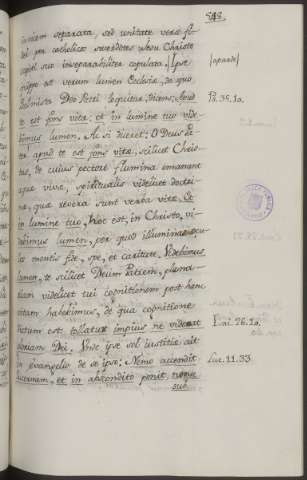 848
in viam separata, sed unitate verae fi-
dei per catholicos sacerdotes Jesu Christo
capiti suo inseparabiliter copulata. Ipse
quippe est verum lumen Ecclesiae, de quo
Psalmista Deo Patri loquitur, dicens: Apud
te est fons vitae; et in lumine tuo vide-
bimus lumen. Ac si diceret: O Deus Pa-
ter apud te est fons vitae, scilicet Chris-
tus, de cuius pectore flumina emanant
aquae vivae, spiritualis videlicet doctri-
nae, quae revera sunt verba vitae. Et
in lumine tuo, hoc est, in Christo, vi-
debimus lumen, per quod illuminas ocu-
los mentis fide, spe, et caritate. Videbimus
lumen, te scilicet Deum Patrem, plena-
riam videlicet tui cognitionem post hanc
vitam habebimus, de qua cognitione
dictum est: tollatur impius ne videat
gloriam Dei. Unde ipse sol iustitiae ait
in evangelio de se ipso: Nemo accendit
lucernam, et in abscondito ponit, neque
sub
(aparte)
Ps. 35.10.
Isai. 26.10.
Luc. 11.33.